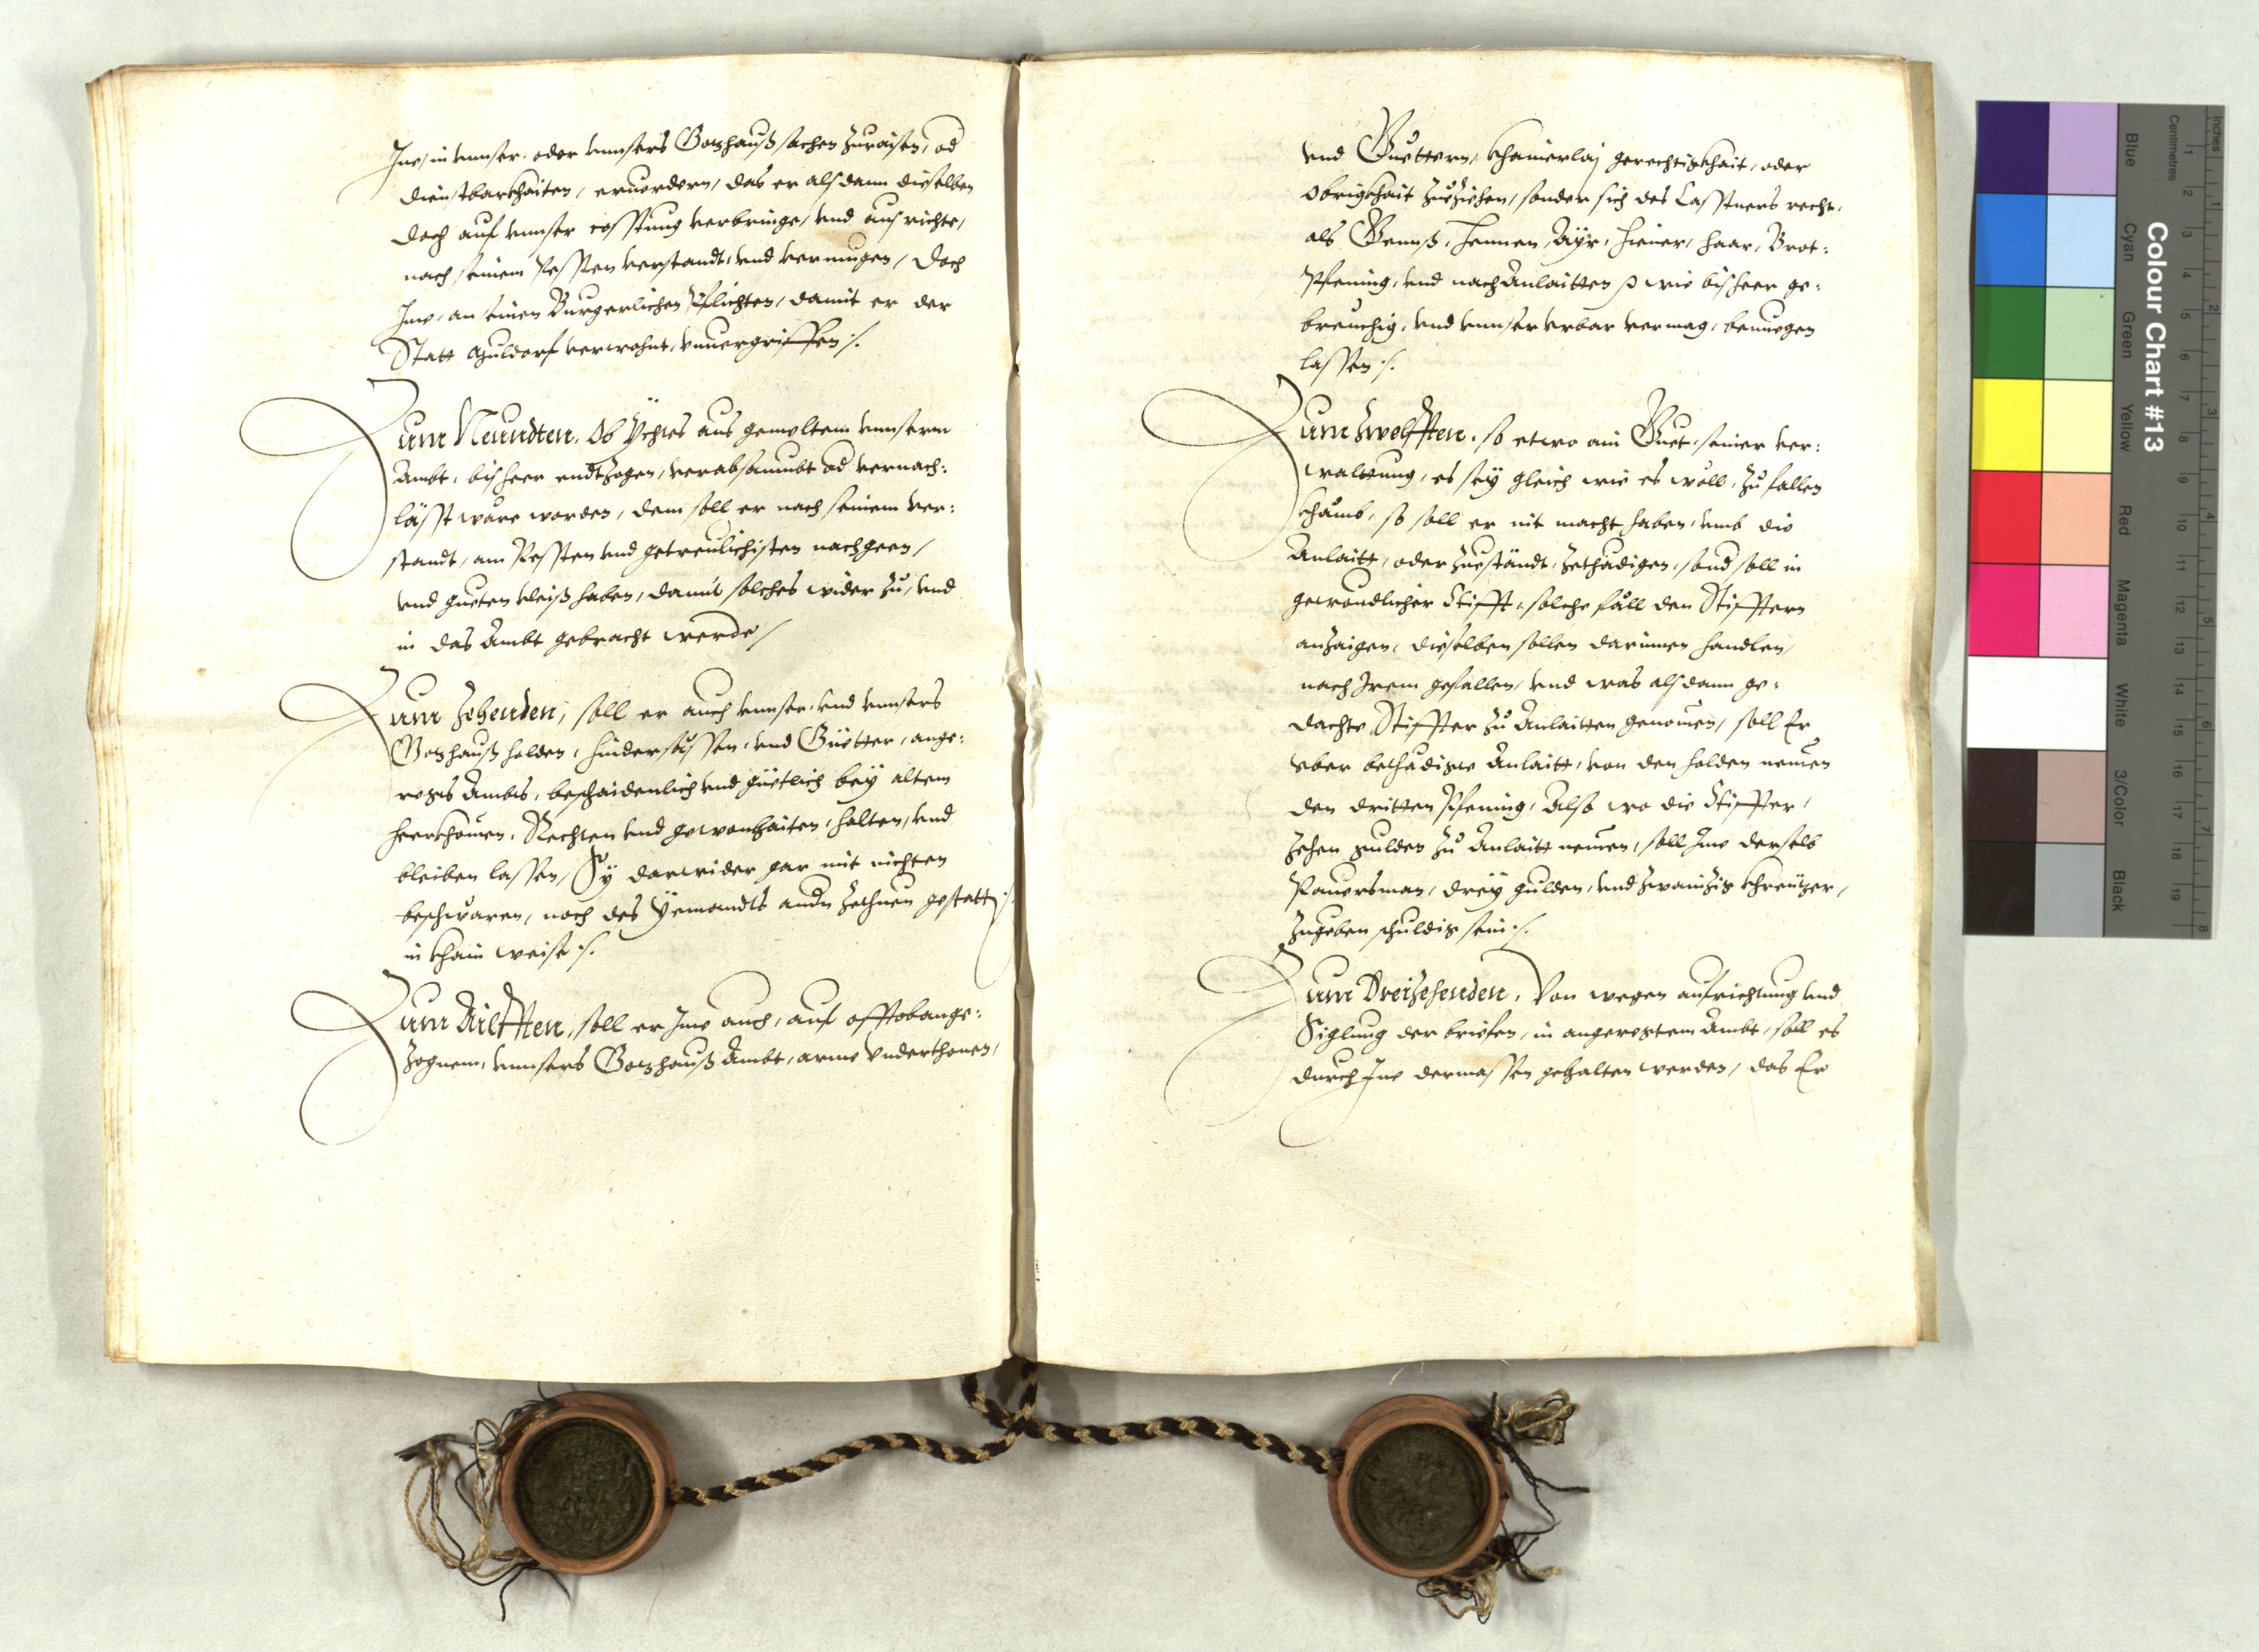 Ime, in vnnser oder vnnsers Gotzhauß sachen zuraisen, od
dienstbarkhaiten, eruordern, das er alsdann dieselben
doch auf vnnser costung verbringe, vnd ausrichte,
nach seinem Pessten verstandt, vnd vermugen, doch
Ime, an seinen Burgerlichen Pflichten, damit er der
Statt Muldorf verwohnt, vnuergriffen :/.
Zum Neundten, Ob Ychtes aus gemeltem vnnserm
Ambt, bisheer endtzogen, verabsaumbt od vernach:
lässt wäre worden, dem soll er nach seinem ver:
standt, am Pessten vnd getreulichisten nachgeen,
vnd gueten vleiß haben, damit solches wider zu, vnd
in das Ambt gebracht werde /
Zum Zehenden, soll er auch vnnser, vnd vnnsers
Gotzhauß holden, hindersässen, vnd Güetter, ange:
regts Ambts, beschaidenlich vnd güetlich bey altem
heerkhomen, Rechten vnd gewonhaiten, halten, vnd
bleiben lassen, Sy darwider gar mit nichten
beschwären, noch des Yemandts andn zethuen gestatt
in khain weise :/.
Zum Ailfften, soll er Ime auch, auf offtobange:
zognem, vnnsers Gotzhauß Ambt, arme vnderthonen,
vnd Guettern, khainerlaj gerechtigkhait, oder
Obrigkhait zueziehen, sonder sich des Casstners recht,
als Gennß, Hennen, Ayr, Hiener, Haar, Brot:
Pfening, vnd nach Anlaitten p wie bisheer ge:
breuchig, vnd vnnser vrbar vermag, benuegen
lassen :/.
Zum Zwelfften, so etwo ain Guet, seiner ver:
waltung, es sey gleich wie es wöll, zu fallen
khäme, so soll er nit macht haben, vmb die
Anlaitt, oder zueständt, zethädigen, sond soll in
gewondlicher Stifft, solche fäll den Stifftern
anzaigen, dieselben sollen darinnen handlen,
nach Irem gefallen, vnd was alsdann ge:
dachte Stiffter zu Anlaitten genomen, soll Er
vber bethädigte Anlaitt, von den holden nemen
den dritten Pfening, Also wo die Stiffter,
zehen gulden zu Anlaitt nemen, soll Ime derselb
Pauersman, drey gulden, vnd zwainzig khreutzer,
zugeben schuldig sein :/.
Zum Dreizehenden, Von wegen aufrichtung vnd
Siglung der briefen, in angeregtem Ambt, soll es
durch Ine dermassen gehalten werden, das Er
Colour Chart #13
Blue
Cyan
Green
Yellow
Red
Magenta
White
3/Color
Black
Centimetres
Inches
1
2
3
4
5
6
7
8
9
10
11
12
13
14
15
16
17
18
19
1
2
3
4
5
6
7
8